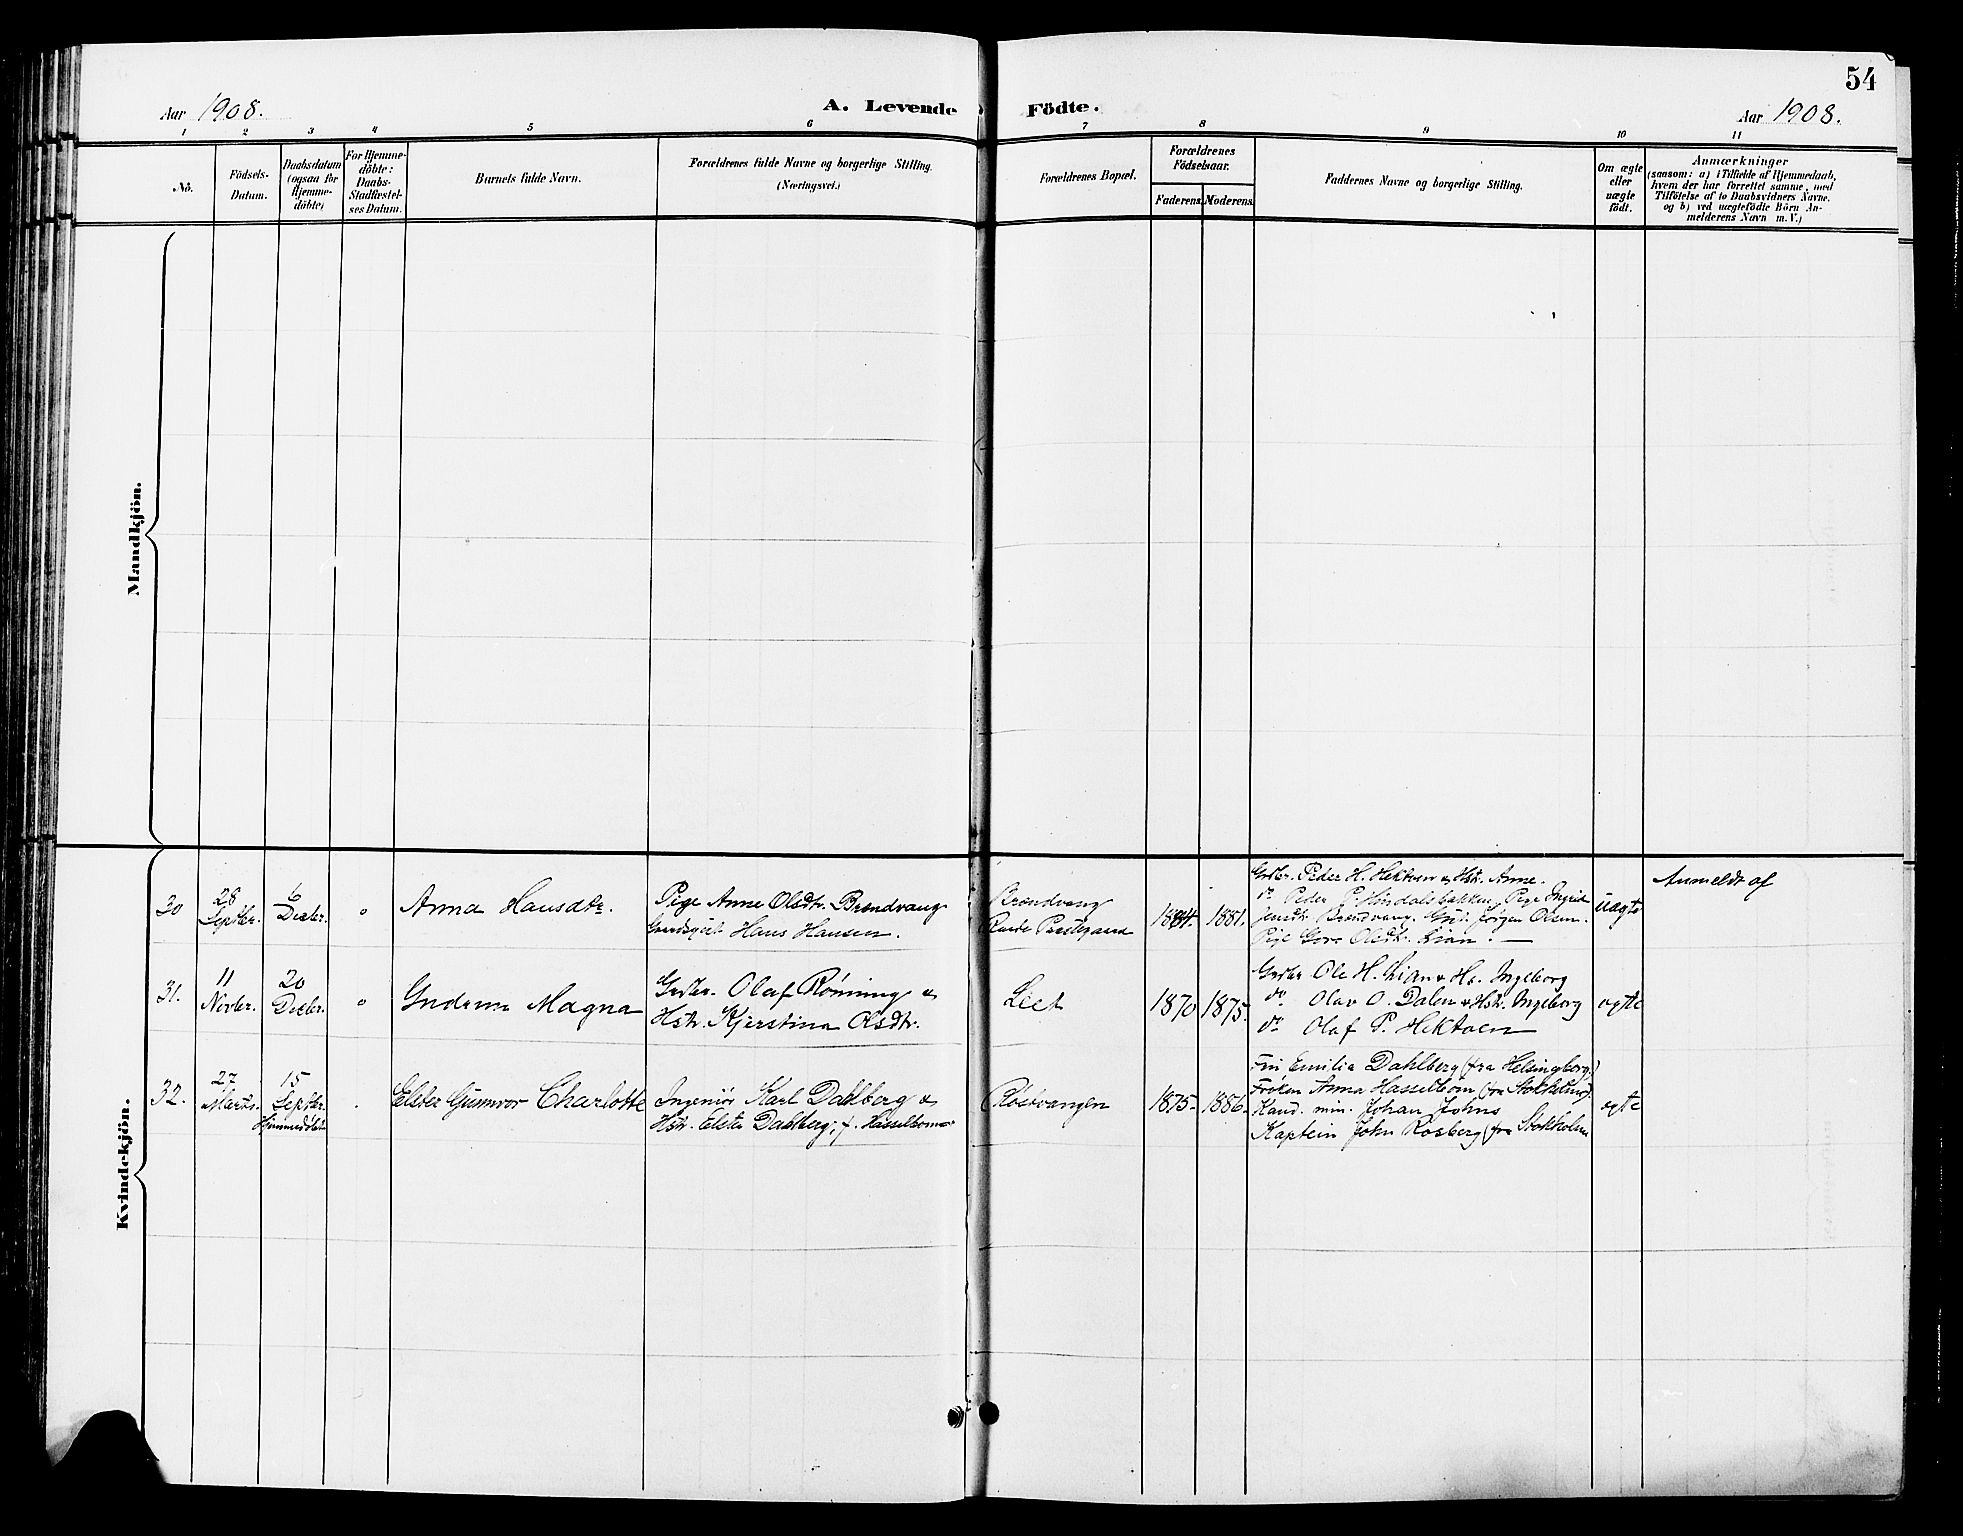 54
Aar 1908.
A. Levende Födte.
Aar 1908.
1 2 3 4 5 6 7 8 9 10 11
No.
Födsels-
Datum.
Daabsdatum
(ogsaa for
Hjemme-
döbte)
For Hjemme-
döbte:
Daabs-
Stadfæstel-
ses Datum.
Barnets fulde Navn.
Forældrenes fulde Navne og borgerlige Stilling.
(Næringsvei.)
Forældrenes Bopæl.
Forældrenes
Födselsaar.
Faderens. Moderens.
Faddernes Navne og borgerlige Stilling.
Om ægte
eller
uægte
födt.
Anmærkninger
(saasom: a) i Tilfælde af Hjemmedaab,
hvem der har forrettet samme, med
Tilföielse af to Daabsvidners Navne.
og b) ved uægtefödte Börn An-
melderens Navn m. V.)
Mandkjön.
Kvindekjön.
30
28
Septbr.
6
Decbr.
Anna Hansdtr.
Pige Anne Olsdtr. Brendvang
Hans Hansen.
Brendvang
1881.
Grdbr. Peder H. Hektoen & Hstr. Anne.
do Peder P. Hindalsbakken, Pige Ingrid
Jensdtr. Brendvang. Grdt. Jørgen Olsen.
Pige Olsdtr. Lian. —
uægte
Anmeldt af
31.
11
Novbr.
20
Decbr.
Gudrun Magna
Grdbr. Olaf Rønning &
Hstr. Kjerstina Olsdtr.
1870
1875.
Grdbr Ole H. Lian & Hs. Ingeborg
do Olav O. Dalen & Hstr. Ingeborg
do Olaf P. Hektoen
ægte
32.
27
Marts.
15
Septbr.
Hjemmedøbt
Elster Gunnvor Charlotte
Ingeniør Karl Dahlberg &
Hstr. Elster Dahlberg, f. Hasselbom
Røstvangen
1875.
1886.
Emilia Dahlberg (fra Helsingborg.)
Frøken Anna Hasselbom (fra Stokholm)
Kand. min. Johan Johns
Kaptein John Rosberg (fra Stokholm
ægte